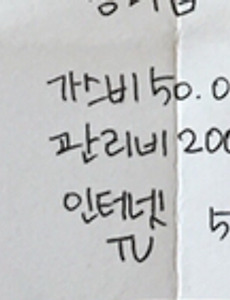 가스비 50.0
관리비 200
인터넷 5
TV